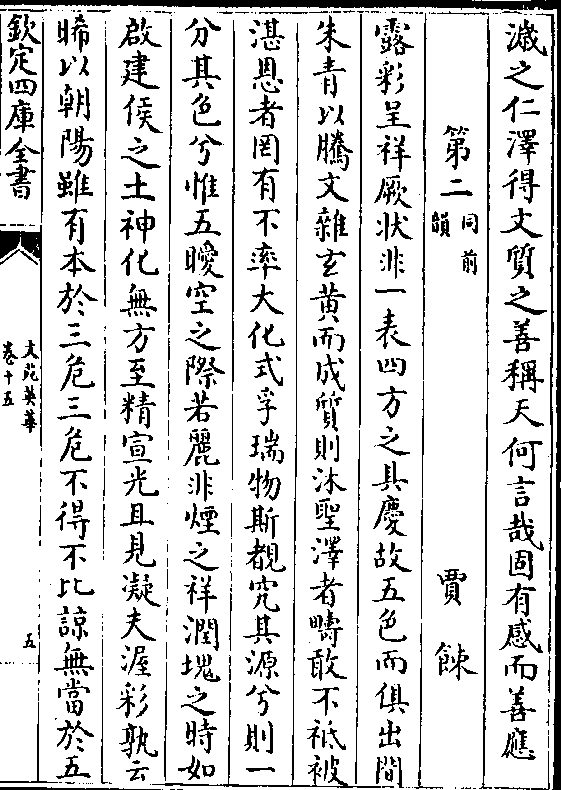 濊之仁澤得文質之善稱天何言哉固有感而善應
第二同前韻 賈餗
露彩呈祥厥狀非一表四方之具慶故五色而俱出間
朱青以騰文雜玄黄而成質則沐聖澤者疇敢不祗被
湛恩者罔有不率大化式孚瑞物斯覩究其源兮則一
分其色兮惟五曖空之際若麗非煙之祥潤塊之時如
啟建侯之土神化無方至精宣光且見凝夫渥彩孰云
晞以朝陽雖有本於三危三危不得不比諒無當於五
欽定四庫全書
文苑英華
卷十五
五